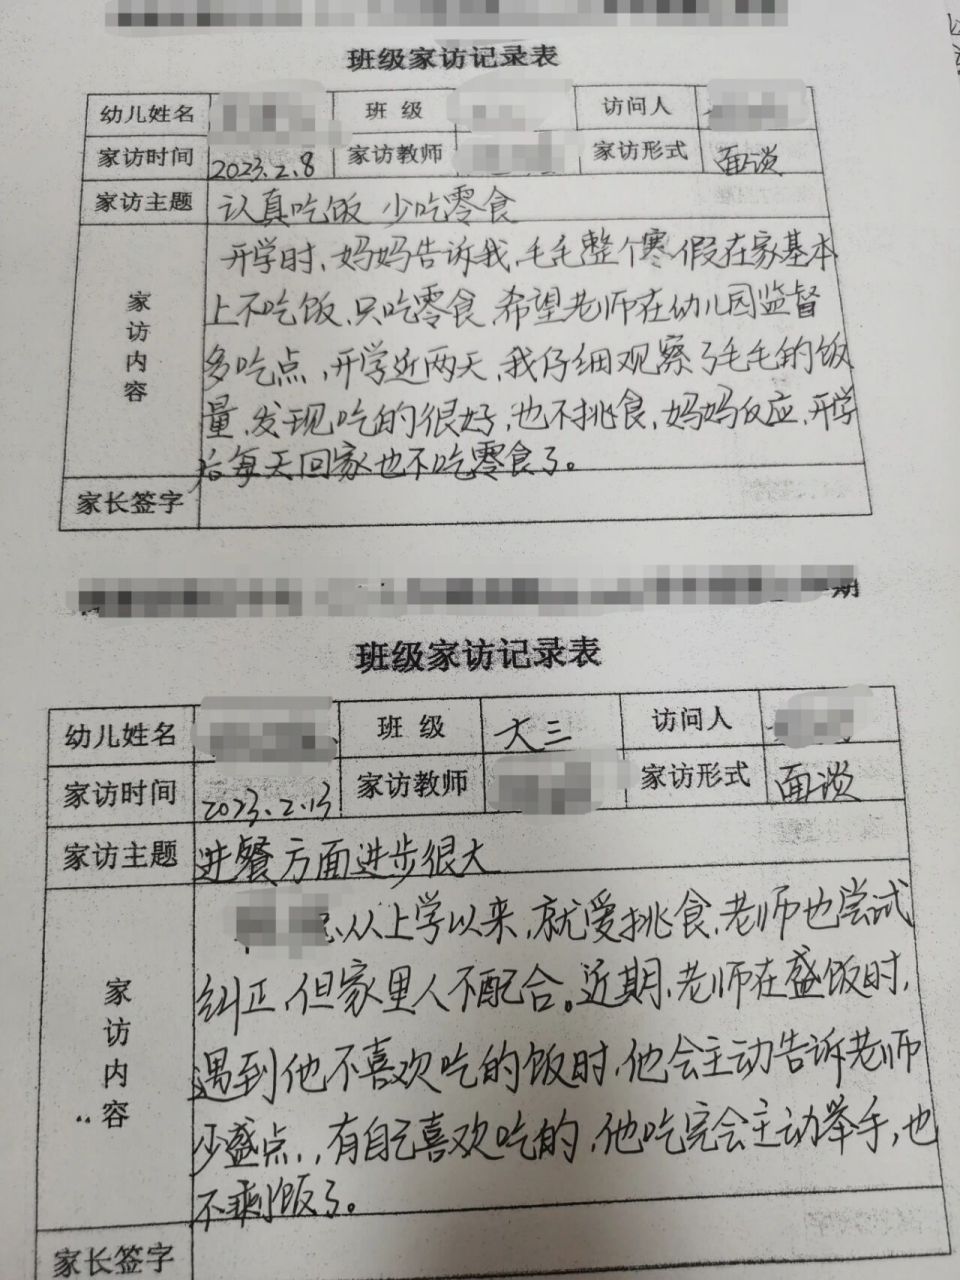 班级家访记录表
幼儿姓名 班 级 访问人
家访时间 2023.2.8 家访教师 家访形式 面谈
家访主题 认真吃饭 少吃零食
开学时、妈妈告诉我、毛毛整个寒假在家基本
上不吃饭、只吃零食、希望老师在幼儿园监督
多吃点，开学近两天、我仔细观察了毛毛的饭
量、发现吃的很好，也不挑食，妈妈反应、开学
后每天回家也不吃零食了。
家访内容
家长签字
期
班级家访记录表
幼儿姓名 班 级 大三 访问人
家访时间 2023.2.13 家访教师 家访形式 面谈
家访主题 进餐方面进步很大
、从上学以来，就爱挑食、老师也尝试
纠正、但家里人不配合。近期、老师在盛饭时，
遇到他不喜欢吃的饭时、他会主动告诉老师
少盛点，，有自己喜欢吃的，他吃完会主动举手，也
不剩饭了。
家访内容
家长签字